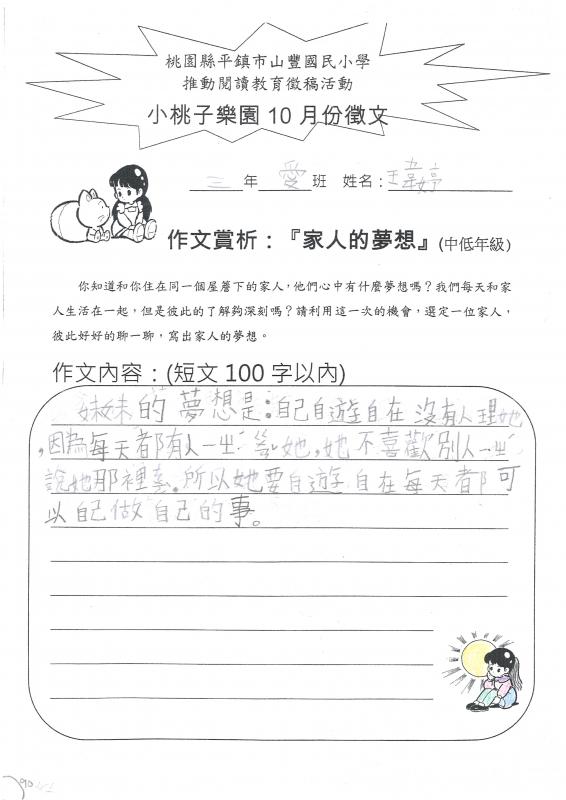 桃園縣平鎮市山豐國民小學
推動閱讀教育徵稿活動
小桃子樂園 10 月份徵文
三 年 愛 班 姓名:王韋婷
作文賞析:『家人的夢想』(中低年級)
你知道和你住在同一個屋簷下的家人,他們心中有什麼夢想嗎?我們每天和家
人生活在一起,但是彼此的了解夠深刻嗎?請利用這一次的機會,選定一位家人,
彼此好好的聊一聊,寫出家人的夢想。
作文內容:(短文 100 字以內)
妹妹的夢想是:自己自遊自在沒有人理她
,因為每天都有人一ㄓˊ 她,她不喜歡別人一ㄓˊ
說她那裡 。所以她要自遊自在每天都可
以自己做自己的事。
90